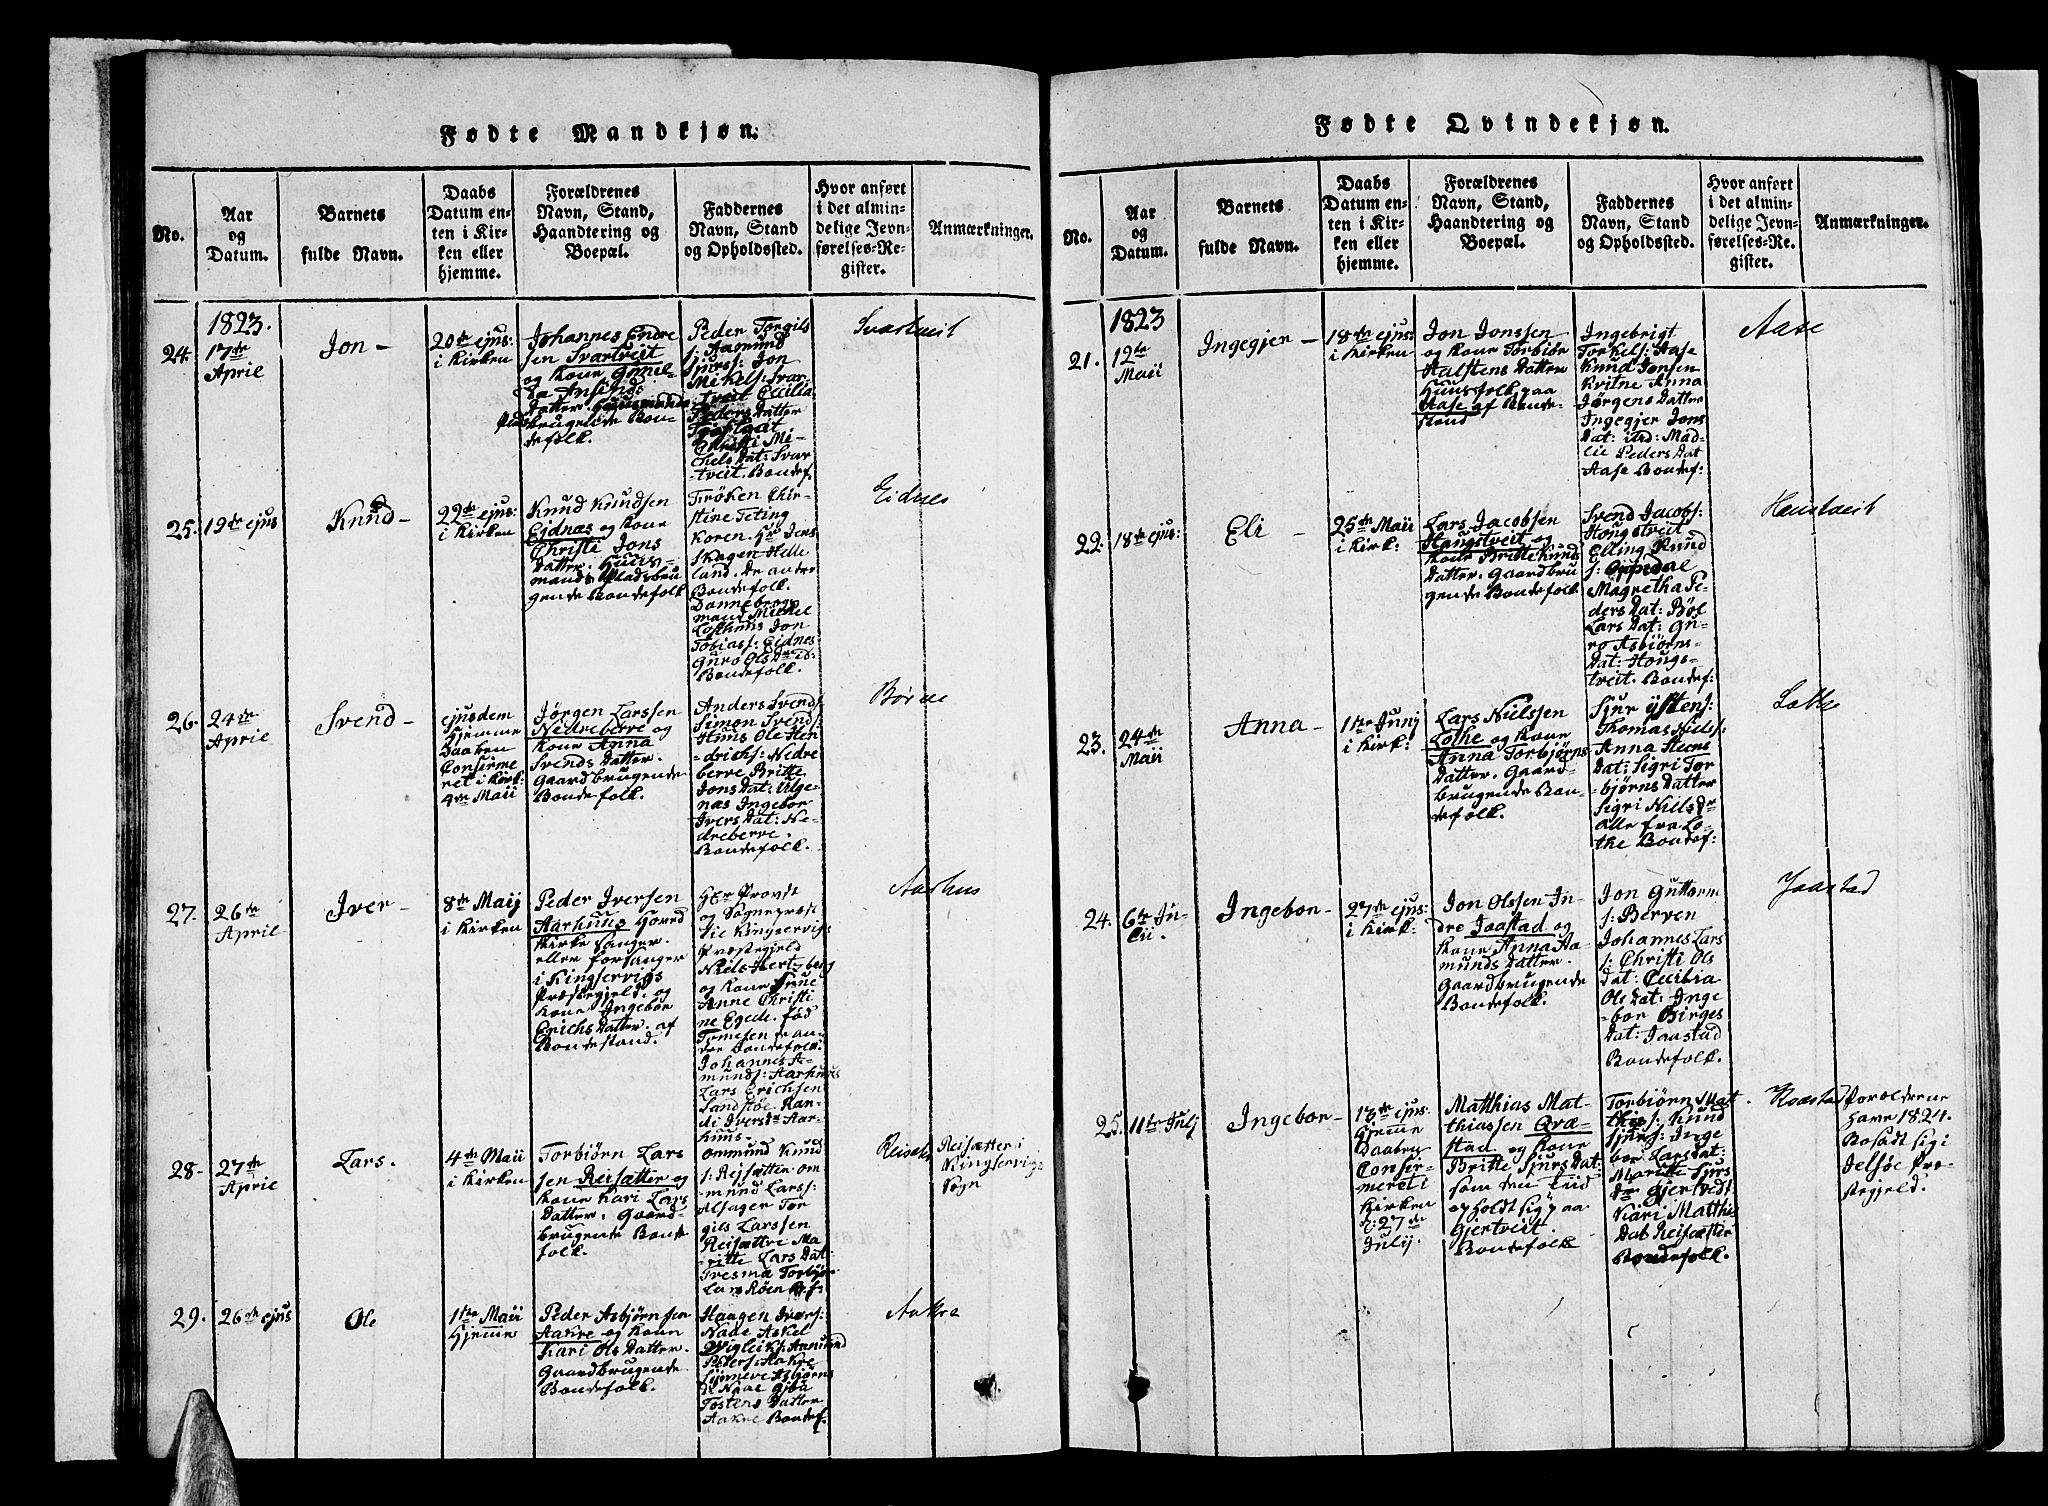 Fødte Mandkjøn.
No.
Aar
og
Datum.
Barnets
fulde Navn.
Daabs
Datum en-
ten i Kir-
ken eller
hjemme.
Forældrenes
Navn, Stand,
Haandtering og
Boepæl.
Faddernes
Navn, Stand
og Opholdssted.
Hvor anført
i det almin-
delige Jevn-
førelses-Re-
gister.
Anmærkninger.
1823.
24.
17de
April
Jon -
20de ejus:
i Kirken
Johannes Endre
sen Svartveit
og Kone
Datter.
brugende Bon-
defolk.
Peder Torgils
s: Aamund
Sjurs: Jon
Mikels: Svar
tveit Cicilia
Peders Datter
Christi Mi-
chels Dat: Svar
tveit. Bondef.
Svartveit
25.
19de ejus
Knud -
22de ejus:
i Kirken
Knud Knudsen
Eidnæs og Kone
Christi Jons
Datter. Huus-
mands Pladsbru
gende Bondefolk
Frøken Chir-
stine Teting
Koren. Hr Jens
Skagen Helle
land. De andre
Bondefolk.
Dannebrogs
mand Michel
Lofthuus Jon
Tobiass: Eidnes
Guro Ols Dr ib:
Bondefolk.
Eidnes
26.
24de
April
Svend -
ejusdem
hjemme
Daaben
Confirme
ret i Kirk:
4de Maii
Jørgen Larssen
Nedreberre og
Kone Anna
Svends Datter.
Gaardbrugende
Bondefolk.
Anders Svends:
Simon Svends:
Huus Ole Hen
drichs: Nedre
berre Britte
Jons Dat: Alge-
næs Ingebor
Ivers Dat: Ne-
dreberre.
Bondefolk.
Børve
27.
26de
April
Iver -
8de Maij
i Kirken
Peder Iversen
Aarhuus Hoved
Kirke Sanger.
eller Forsanger
i Kingservigs
Præstegjeld. og
Kone Ingebor
Erichs Datter. af
Bondestand.
Hr Provst
og Sognepræst
til Kingservigs
Præstegjeld
Niels Hertzberg
og Kone Frue
Anne Christi
ne Egede. fød
de an-
dre Bondefolk
Johannes A-
munds: Aarhuus
Lars Erichsen
Sandstøe Ran-
di Ivers Dr Aar-
huus.
Aarhus
28.
27de
April
Lars.
4de Maii
i Kirken
Torbiørn Lars
sen Reisætter og
Kone Kari Lars
Datter. Gaard-
brugende Bonde
folk.
Ommund Knud
s: Reisætter om
mund Larss:
Alsager Tor
gils Larssen
Reisættre Ma-
ritte Lars Dat:
Reisætter i
Kingservigs
Sogn
29.
26de ejus
Ole
1ste Maii
hjemme
Peder Asbjørnsen
Aakre og Kone
Kari Ols Datter.
Gaardbrugende
Bondefolk.
Haagen Ivers:
Nade Askel
Wigleiks: Aamund
Peders: Aakre
Synneve Asbjørns
Tostens Datter
Aakre Bondef.
Aakre
Fødte Qvindekjøn.
No.
Aar
og
Datum.
Barnets
fulde Navn.
Daabs
Datum en-
ten i Kir-
ken eller
hjemme.
Forældrenes
Navn, Stand,
Haandtering og
Boepæl.
Faddernes
Navn, Stand
og Opholdssted.
Hvor anført
i det almin-
delige Jevn-
førelses-Re-
gister.
Anmærkninger.
1823
21.
12te
Maii
Ingegjer -
18de ejus:
i Kirken
Jon Jonssen
og Kone Torbiør
Halstens Datter
Huusfolk paa
Aase af Bonde-
stand
Ingebrigt
Torkels: Aase
Knud Jonsen
Kvitne Anna
Jørgens Datter
Ingegjer Jons
Dat: ibd: Mad-
li Peders Dat
Aase Bondef:
Aase
22.
18de ejus:
Eli -
25de Maii
i Kirk:
Lars Jacobsen
Haugstveit og
Kone Britte Knuds
Datter. Gaardbru
gende Bondefolk
Svend Jacobs:
Hougstveit
Elling Knud
s: Oppdal
Magretha Pe-
ders Dat: Bøl
Lars Dat: Gu-
ro Asbiørns-
Dat: Hougs-
tveit. Bondef:
23.
24de
Maii
Anna -
1ste Junj
i Kirk:
Lars Nielssen
Lothe og Kone
Anna Torbjørns-
Datter. Gaard-
brugende Bon-
defolk.
Sjur Ystens:
Thomas Niels:
Anna Steens
Dat: Sigri Tor
bjørns Datter
Sigri Niels Dr
Alle fra Lo-
the Bondef:
Lothe
24.
6te Ju-
lii.
Ingebor -
27de ejus:
i Kirk:
Jon Olssen In-
dre Jaastad og
Kone Anna Aa-
munds Datter.
Gaardbrugende
Bondefolk.
Jon Guttorm
s: Berven
Johannes Lars
s: Christi Ols
Dat: Cecibia
Ols Dat: Inge
bor Birges
Dat: Jaastad
Bondefolk.
Jaastad
25.
11te Julj
Ingebor -
13de ejus:
hjemme
Daaben
Confir-
meret i
Kirken
d: 27de
Julij.
Matthias Mat-
thiassen Qræ-
stad og Kone
Britte Sjurs Dat:
som den Tiid
opholdt sig paa
Gjertveit.
Bondefolk
Torbiørn Mat
thies: Knud
Sjurs: Inge
bor Lars Dat:
Maritte Sjurs
Dr Gjertvedt
Kari Matthi
Dat Reisæter
Bondefolk.
Foreldrene
have 1824.
Bosadt sig i
Jelsøe Præ-
stegjeld.